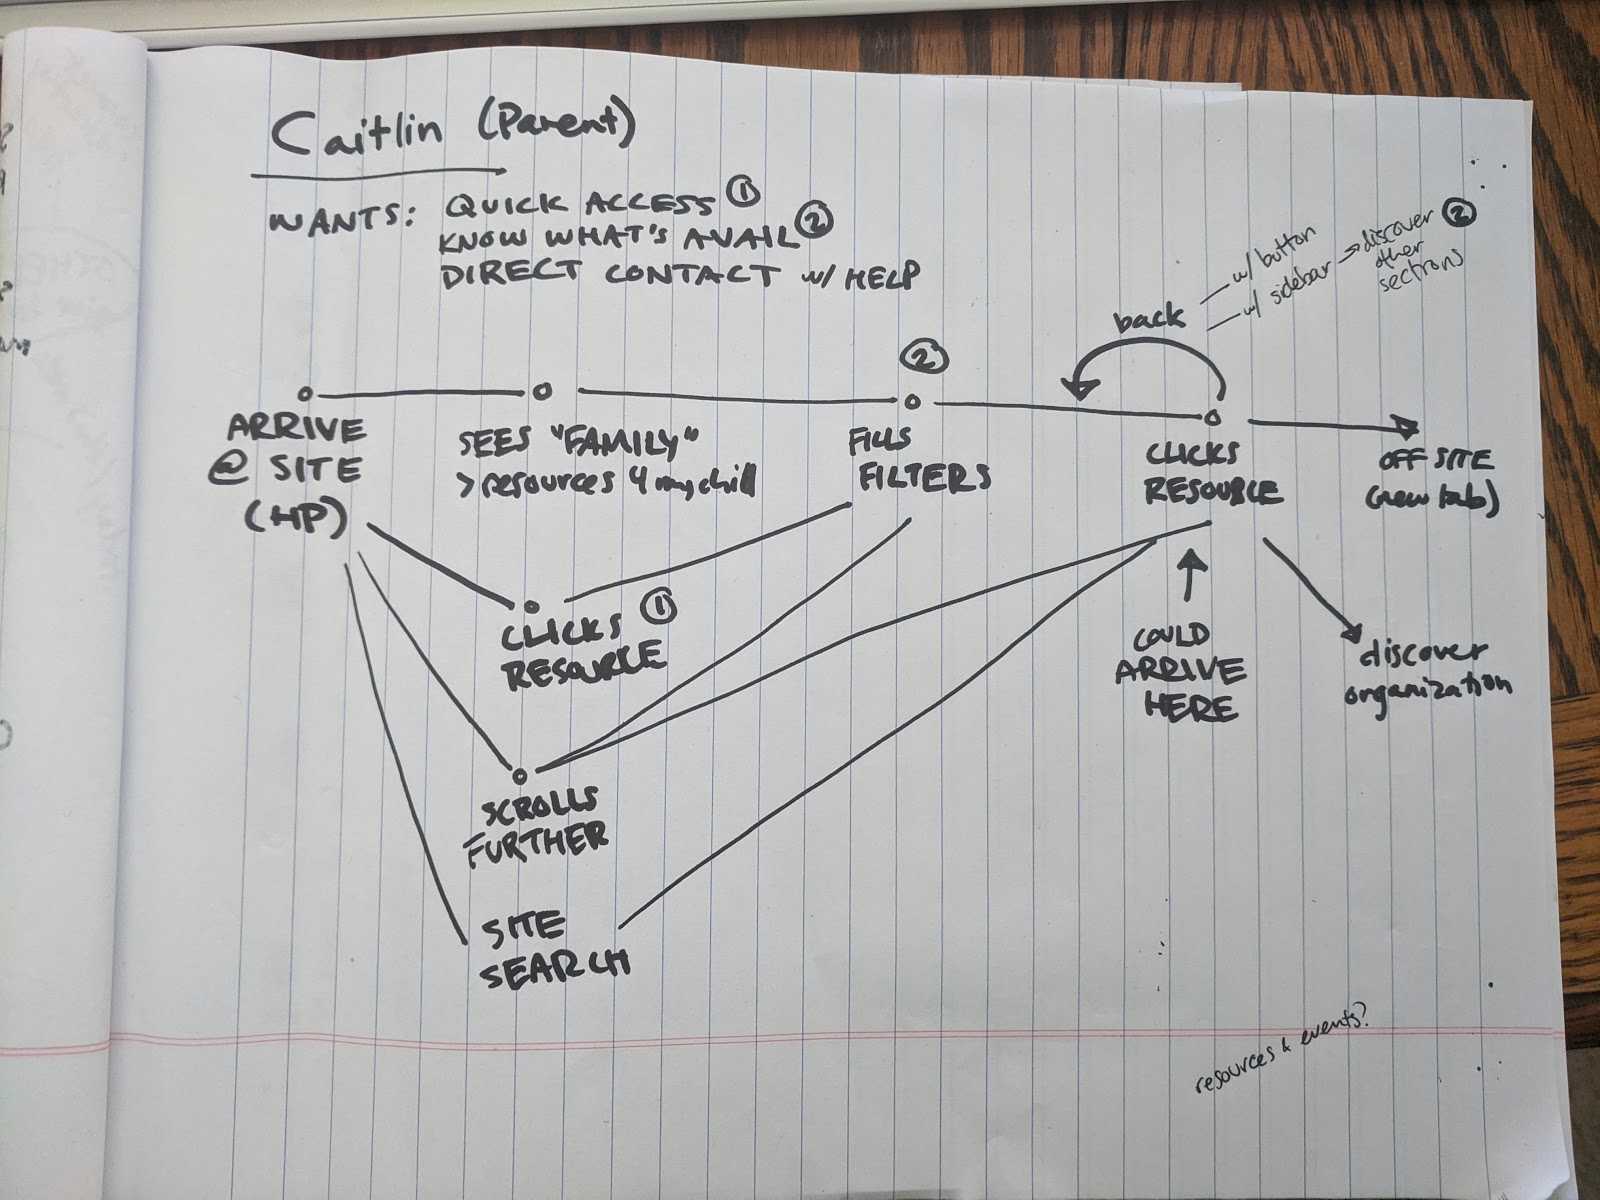 Caitlin (Parent)
WANTS: QUICK ACCESS ①
KNOW WHAT'S AVAIL ②
DIRECT CONTACT w/ HELP
w/ button
w/ sidebar → discover ②
other
sections
back
②
ARRIVE
@ SITE
(HP)
SEES "FAMILY"
>resources 4 my child
FILLS
FILTERS
CLICKS
RESOURCE
OFF SITE
(new tab)
CLICKS ①
RESOURCE
COULD
ARRIVE
HERE
discover
organization
SCROLLS
FURTHER
SITE
SEARCH
resources & events?